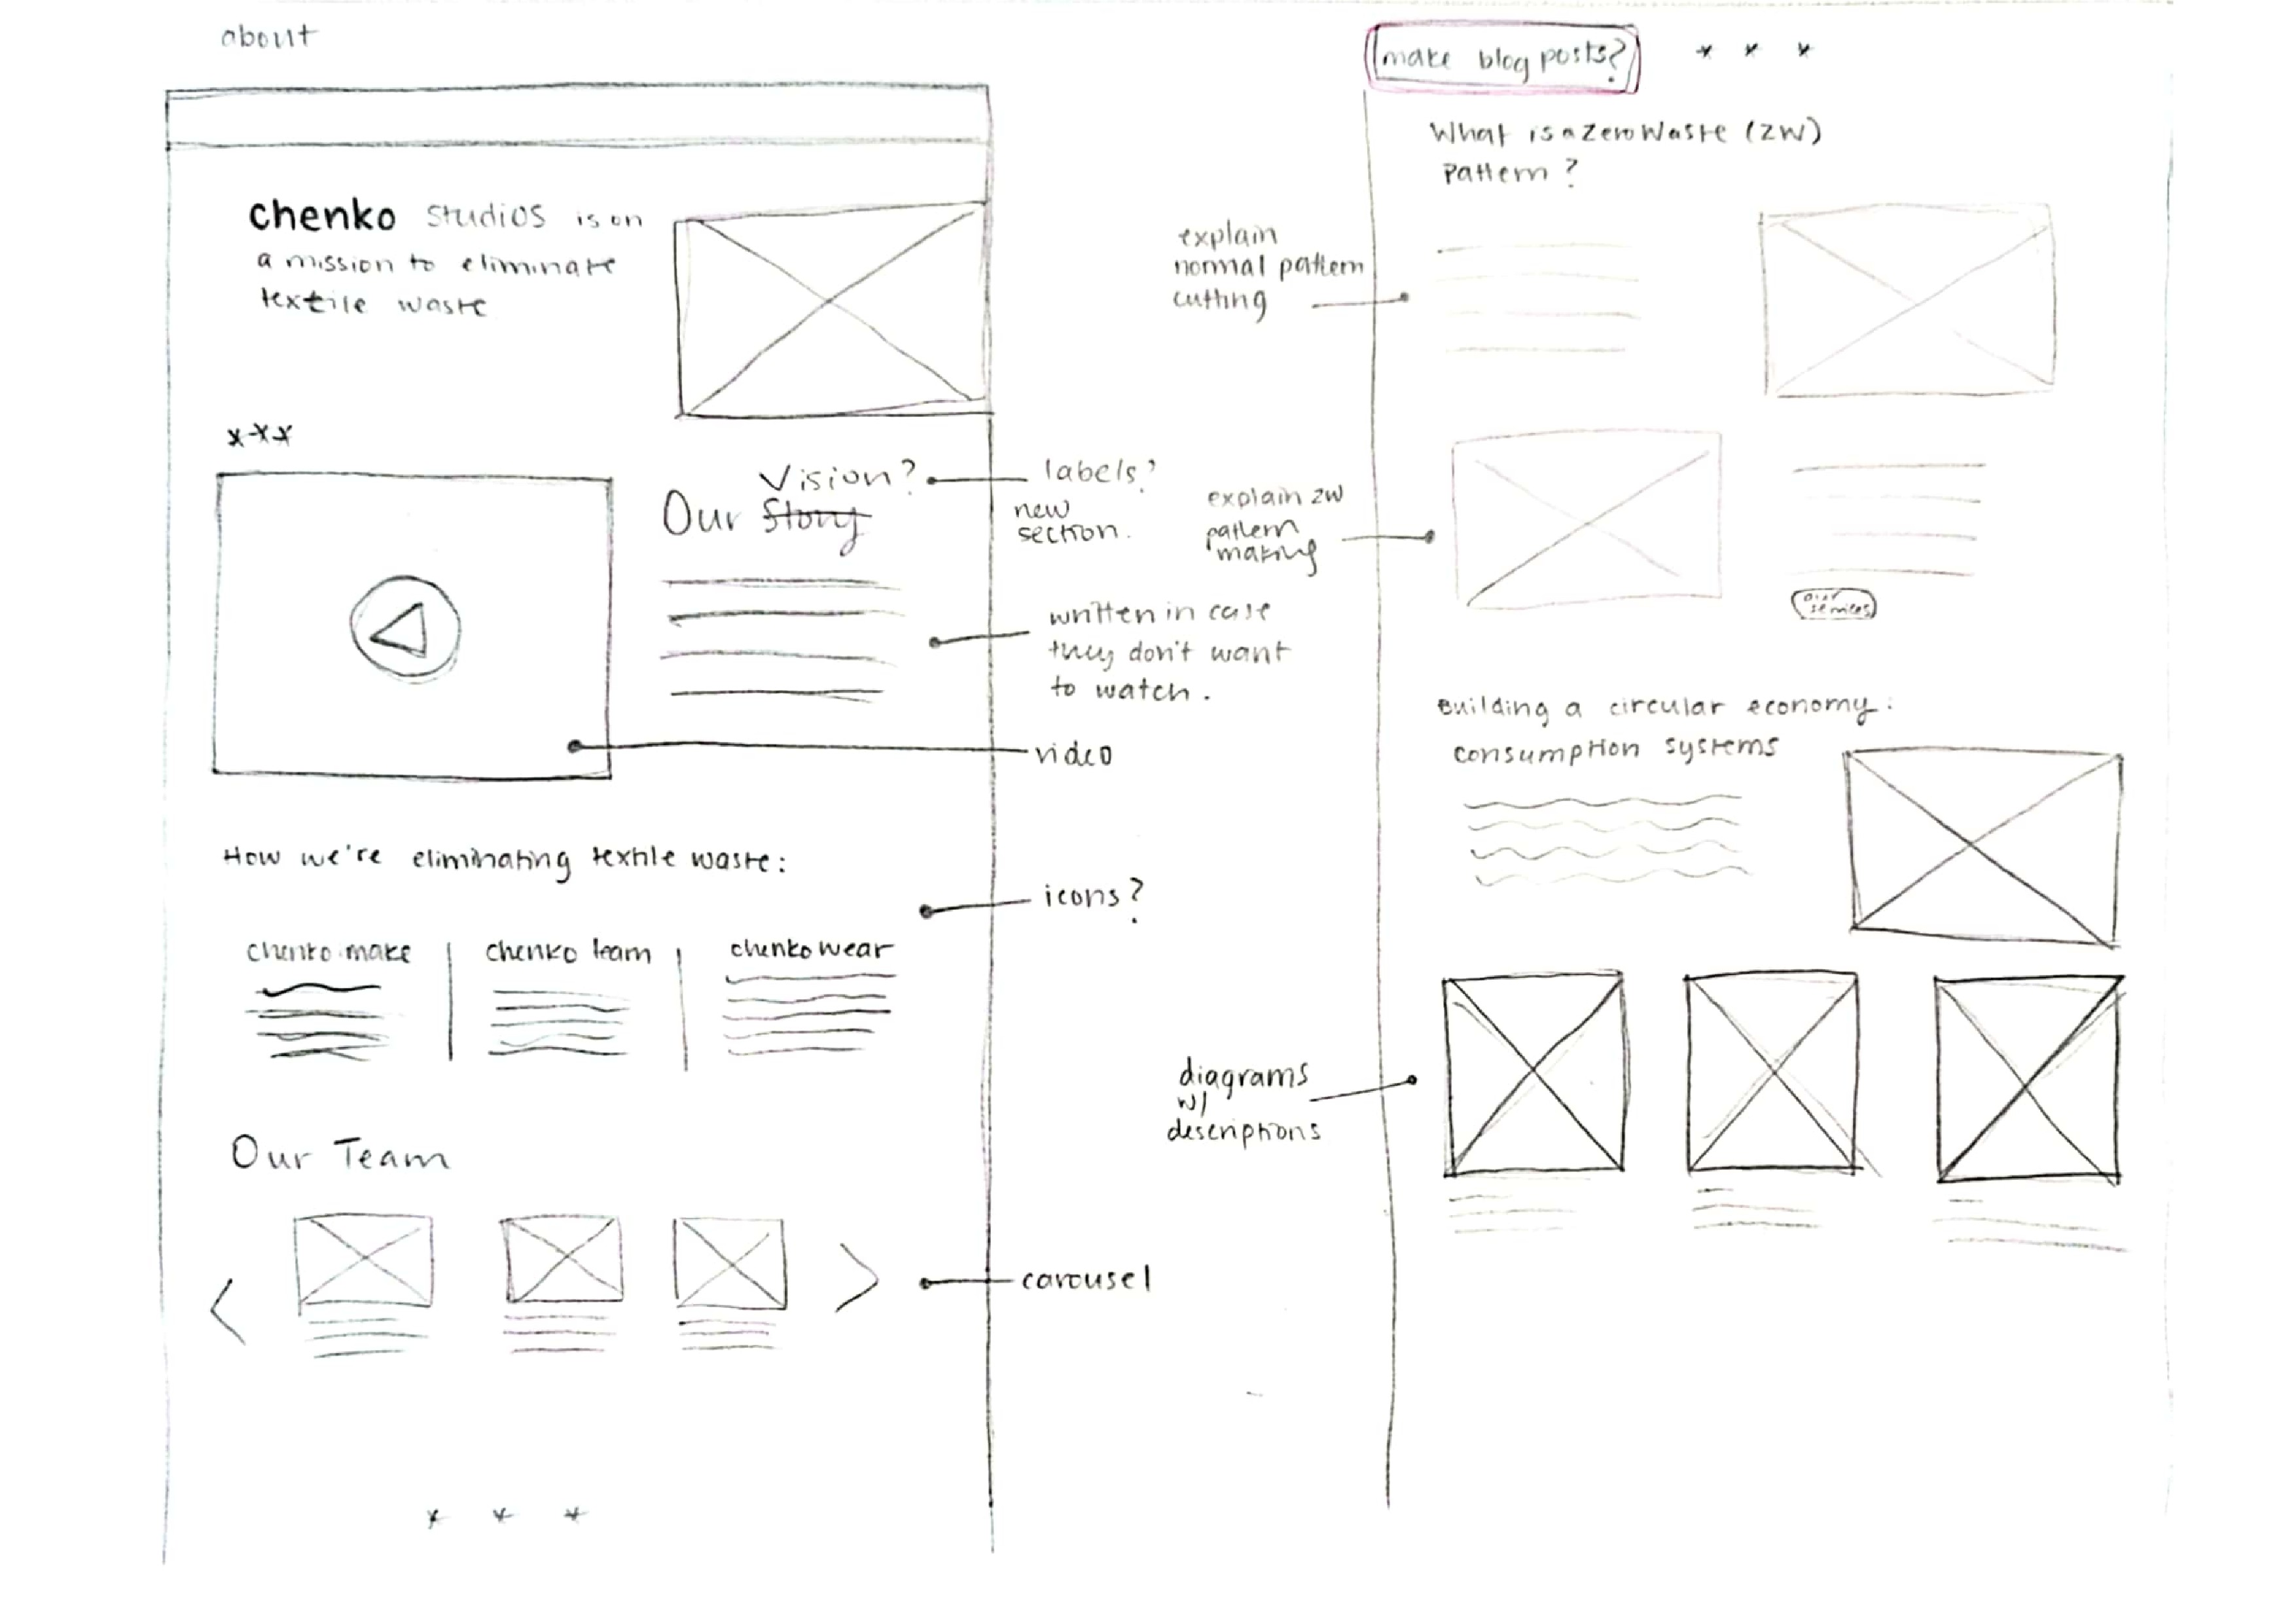 about
chenko studios is on
a mission to eliminate
textile waste
Vision?
Our Story
labels?
new
section.
written in case
they don't want
to watch.
video
How we're eliminating textile waste:
icons?
chenko make
chenko team
chenko wear
Our Team
carousel
make blog posts?
What is a Zero Waste (ZW)
Pattern?
explain
normal pattern
cutting
explain zw
pattern
making
our
services
Building a circular economy:
consumption systems
diagrams
w/
descriptions